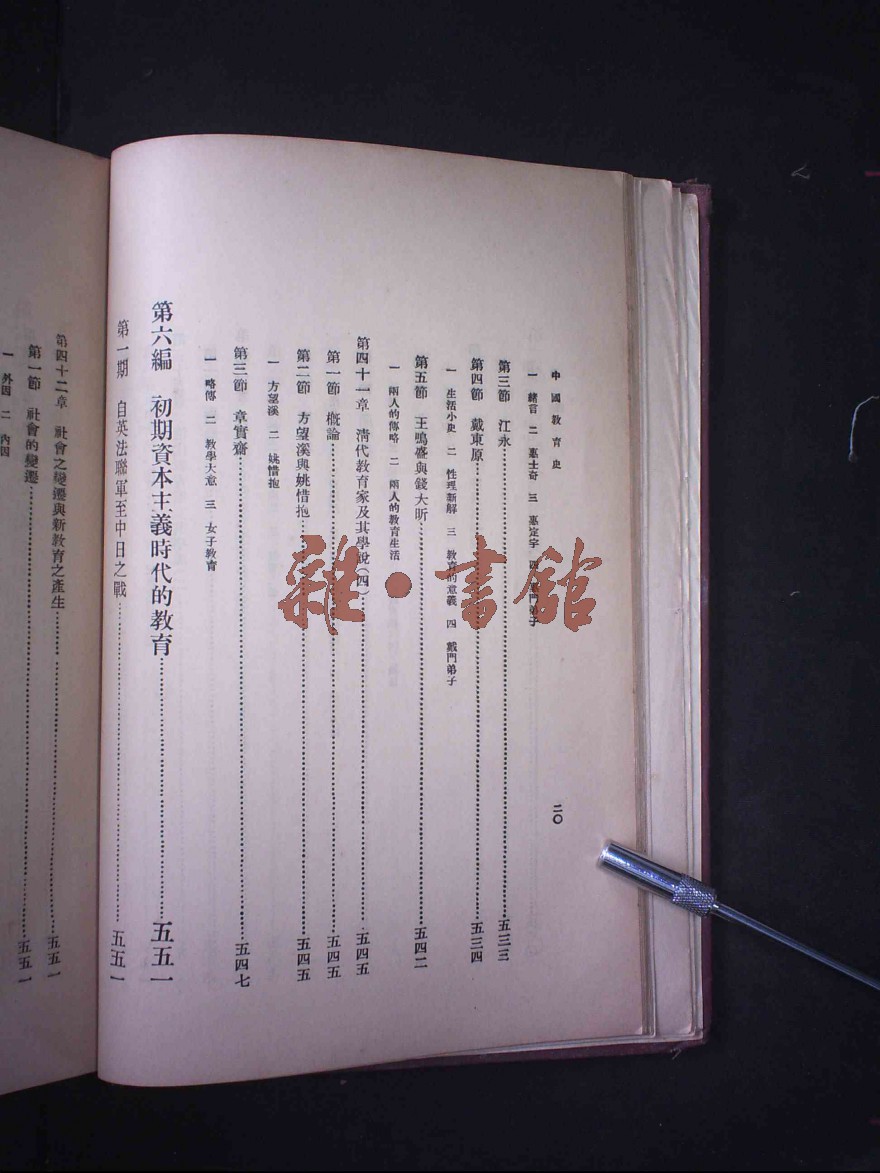 中國教育史
二〇
一 緒言 二 惠士奇 三 惠定宇 四 惠門弟子
第三節 江永……五三三
第四節 戴東原……五三四
一 生活小史 二 性理新解 三 教育的意義 四 戴門弟子
第五節 王鳴盛與錢大昕……五四二
一 兩人的傳略 二 兩人的教育生活
第四十一章 清代教育家及其學說(四)……五四五
第一節 概論……五四五
第二節 方望溪與姚惜抱……五四五
一 方望溪 二 姚惜抱
第三節 章實齋……五四七
一 略傳 二 教學大意 三 女子教育
第六編 初期資本主義時代的教育……五五一
第一期 自英法聯軍至中日之戰……五五一
第四十二章 社會之變遷與新教育之產生……五五一
第一節 社會的變遷……五五一
一 外因 二 內因
雜·書館